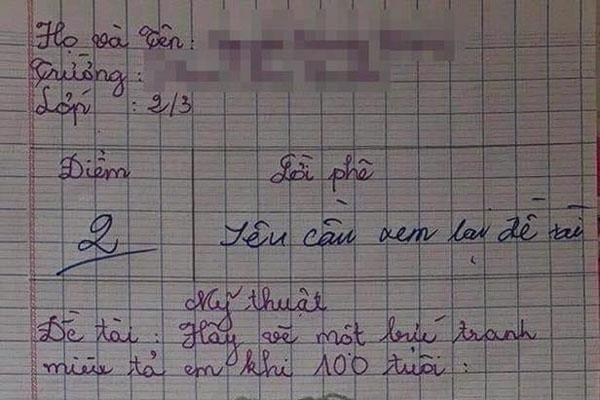 Họ và Tên :
Trường :
Lớp : 2/3
Điểm
Lời phê
2
Yêu cầu xem lại đề tài
Mỹ thuật
Đề tài : Hãy vẽ một bức tranh
miêu tả em khi 100 tuổi :